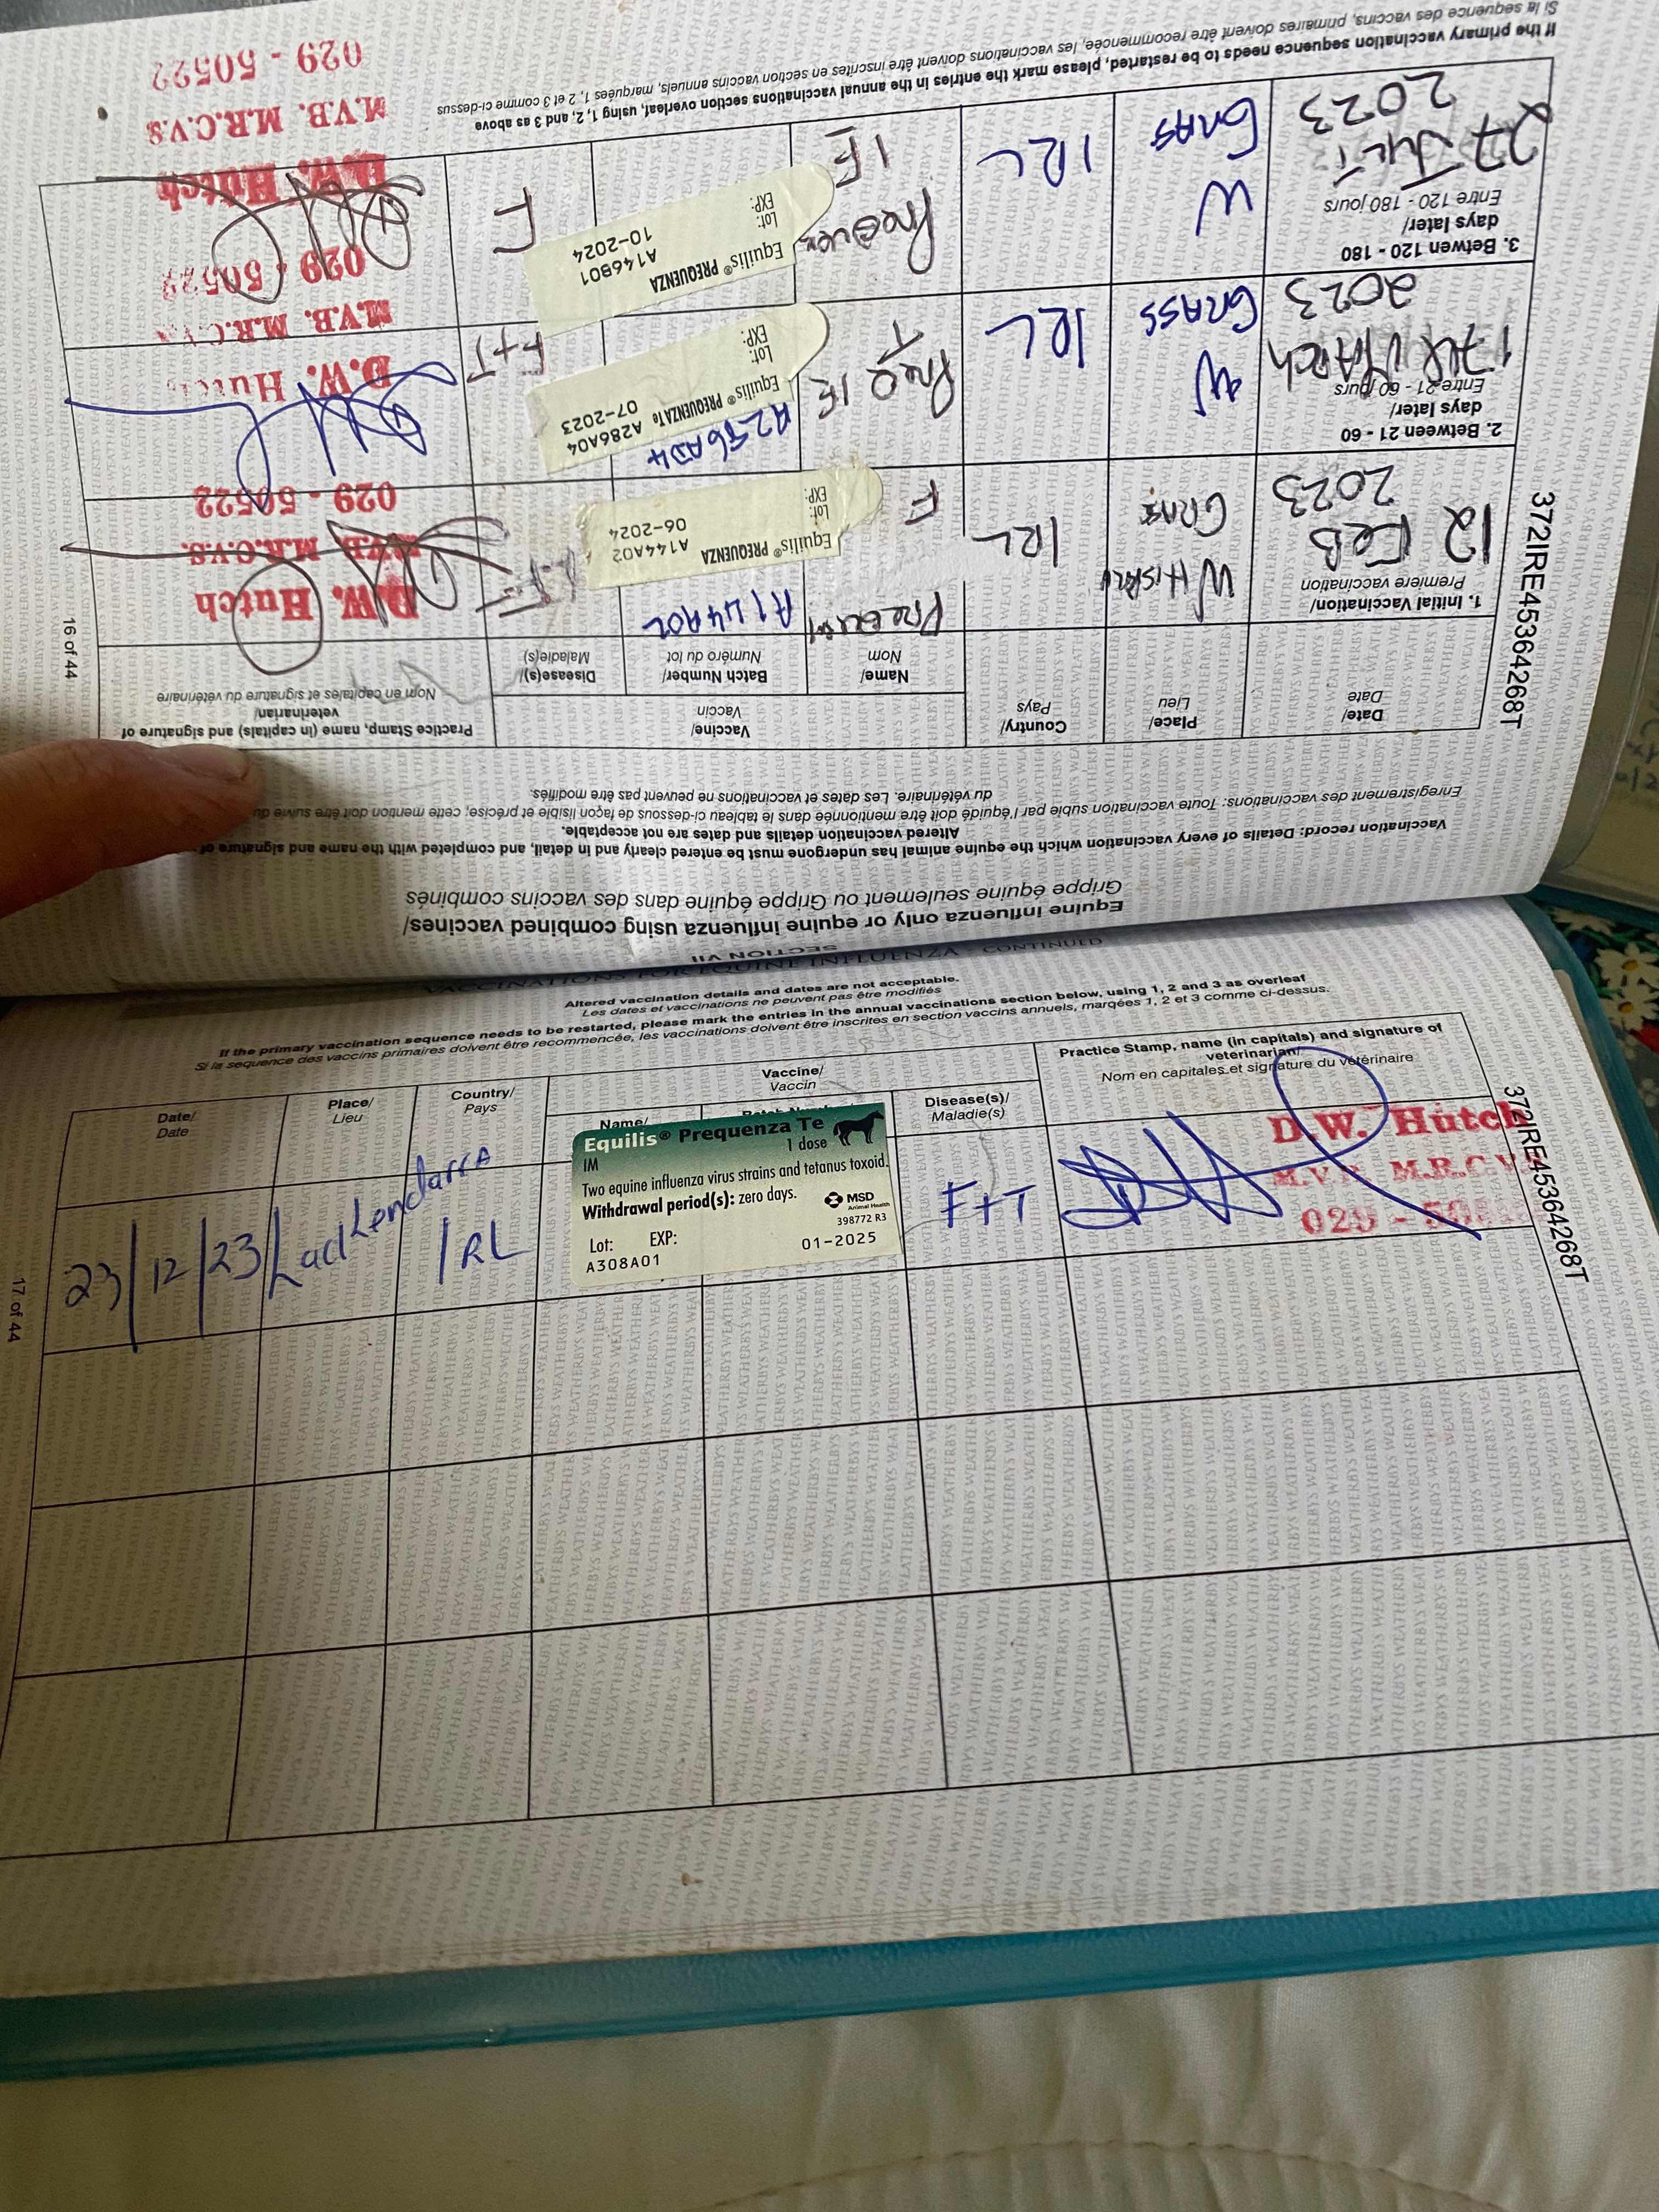 SECTION VII
Equine influenza only or equine influenza using combined vaccines/
Grippe équine seulement ou Grippe équine dans des vaccins combinés
Vaccination record: Details of every vaccination which the equine animal has undergone must be entered clearly and in detail, and completed with the name and signature of
Altered vaccination details and dates are not acceptable.
Enregistrement des vaccinations: Toute vaccination subie par l'équidé doit être mentionnée dans le tableau ci-dessous de façon lisible et précise; cette mention doit être suivie du
du vétérinaire. Les dates et vaccinations ne peuvent pas être modifiés.
372IRE45364268T
Date/
Date
Place/
Lieu
Country/
Pays
Vaccine/
Vaccin
Name/
Nom
Batch Number/
Numéro du lot
Disease(s)/
Maladie(s)
Practice Stamp, name (in capitals) and signature of
veterinarian/
Nom en capitales et signature du vétérinaire
1. Initial Vaccination/
Première vaccination
12 FEB
2023
IRL
F
A144A02
Equilis® PREQUENZA
Lot: A144A02
EXP: 06-2024
D.W. Hutch
M.V.B. M.R.C.V.S.
029 - 50522
2. Between 21 - 60
days later/
Entre 21 - 60 jours
17th MARCH
2023
GRASS
W
IRL
IE
T
Equilis® PREQUENZA Te
Lot: A286A04
EXP: 07-2023
F+T
D.W. Hutch
M.V.B. M.R.C.V.S
029 - 50522
3. Betwen 120 - 180
days later/
Entre 120 - 180 jours
27 JULY
2023
W
IRL
IE
Equilis® PREQUENZA
Lot: A146B01
EXP: 10-2024
F
D.W. Hutch
M.V.B. M.R.C.V.S
029 - 50522
If the primary vaccination sequence needs to be restarted, please mark the entries in the annual vaccinations section overleaf, using 1, 2, and 3 as above
Si la sequence des vaccins, primaires doivent être recommencée, les vaccinations doivent être inscrites en section vaccins annuels, marquées 1, 2 et 3 comme ci-dessus
16 of 44
VACCINATIONS FOR EQUINE INFLUENZA - CONTINUED
Altered vaccination details and dates are not acceptable.
Les dates et vaccinations ne peuvent pas être modifiés
If the primary vaccination sequence needs to be restarted, please mark the entries in the annual vaccinations section below, using 1, 2 and 3 as overleaf
Si la séquence des vaccins primaires doivent être recommencée, les vaccinations doivent être inscrites en section vaccins annuels, marqées 1, 2 et 3 comme ci-dessus.
372IRE45364268T
Date/
Date
Place/
Lieu
Country/
Pays
Vaccine/
Vaccin
Name/
Disease(s)/
Maladie(s)
Practice Stamp, name (in capitals) and signature of
veterinarian/
Nom en capitales et signature du vétérinaire
23/12/23
Lackendarra
IRL
Equilis® Prequenza Te
1 dose
IM
Two equine influenza virus strains and tetanus toxoid.
Withdrawal period(s): zero days.
MSD
Animal Health
398772 R3
Lot: EXP:
A308A01 01-2025
F+T
D.W. Hutch
M.V.B. M.R.C.V.S
17 of 44